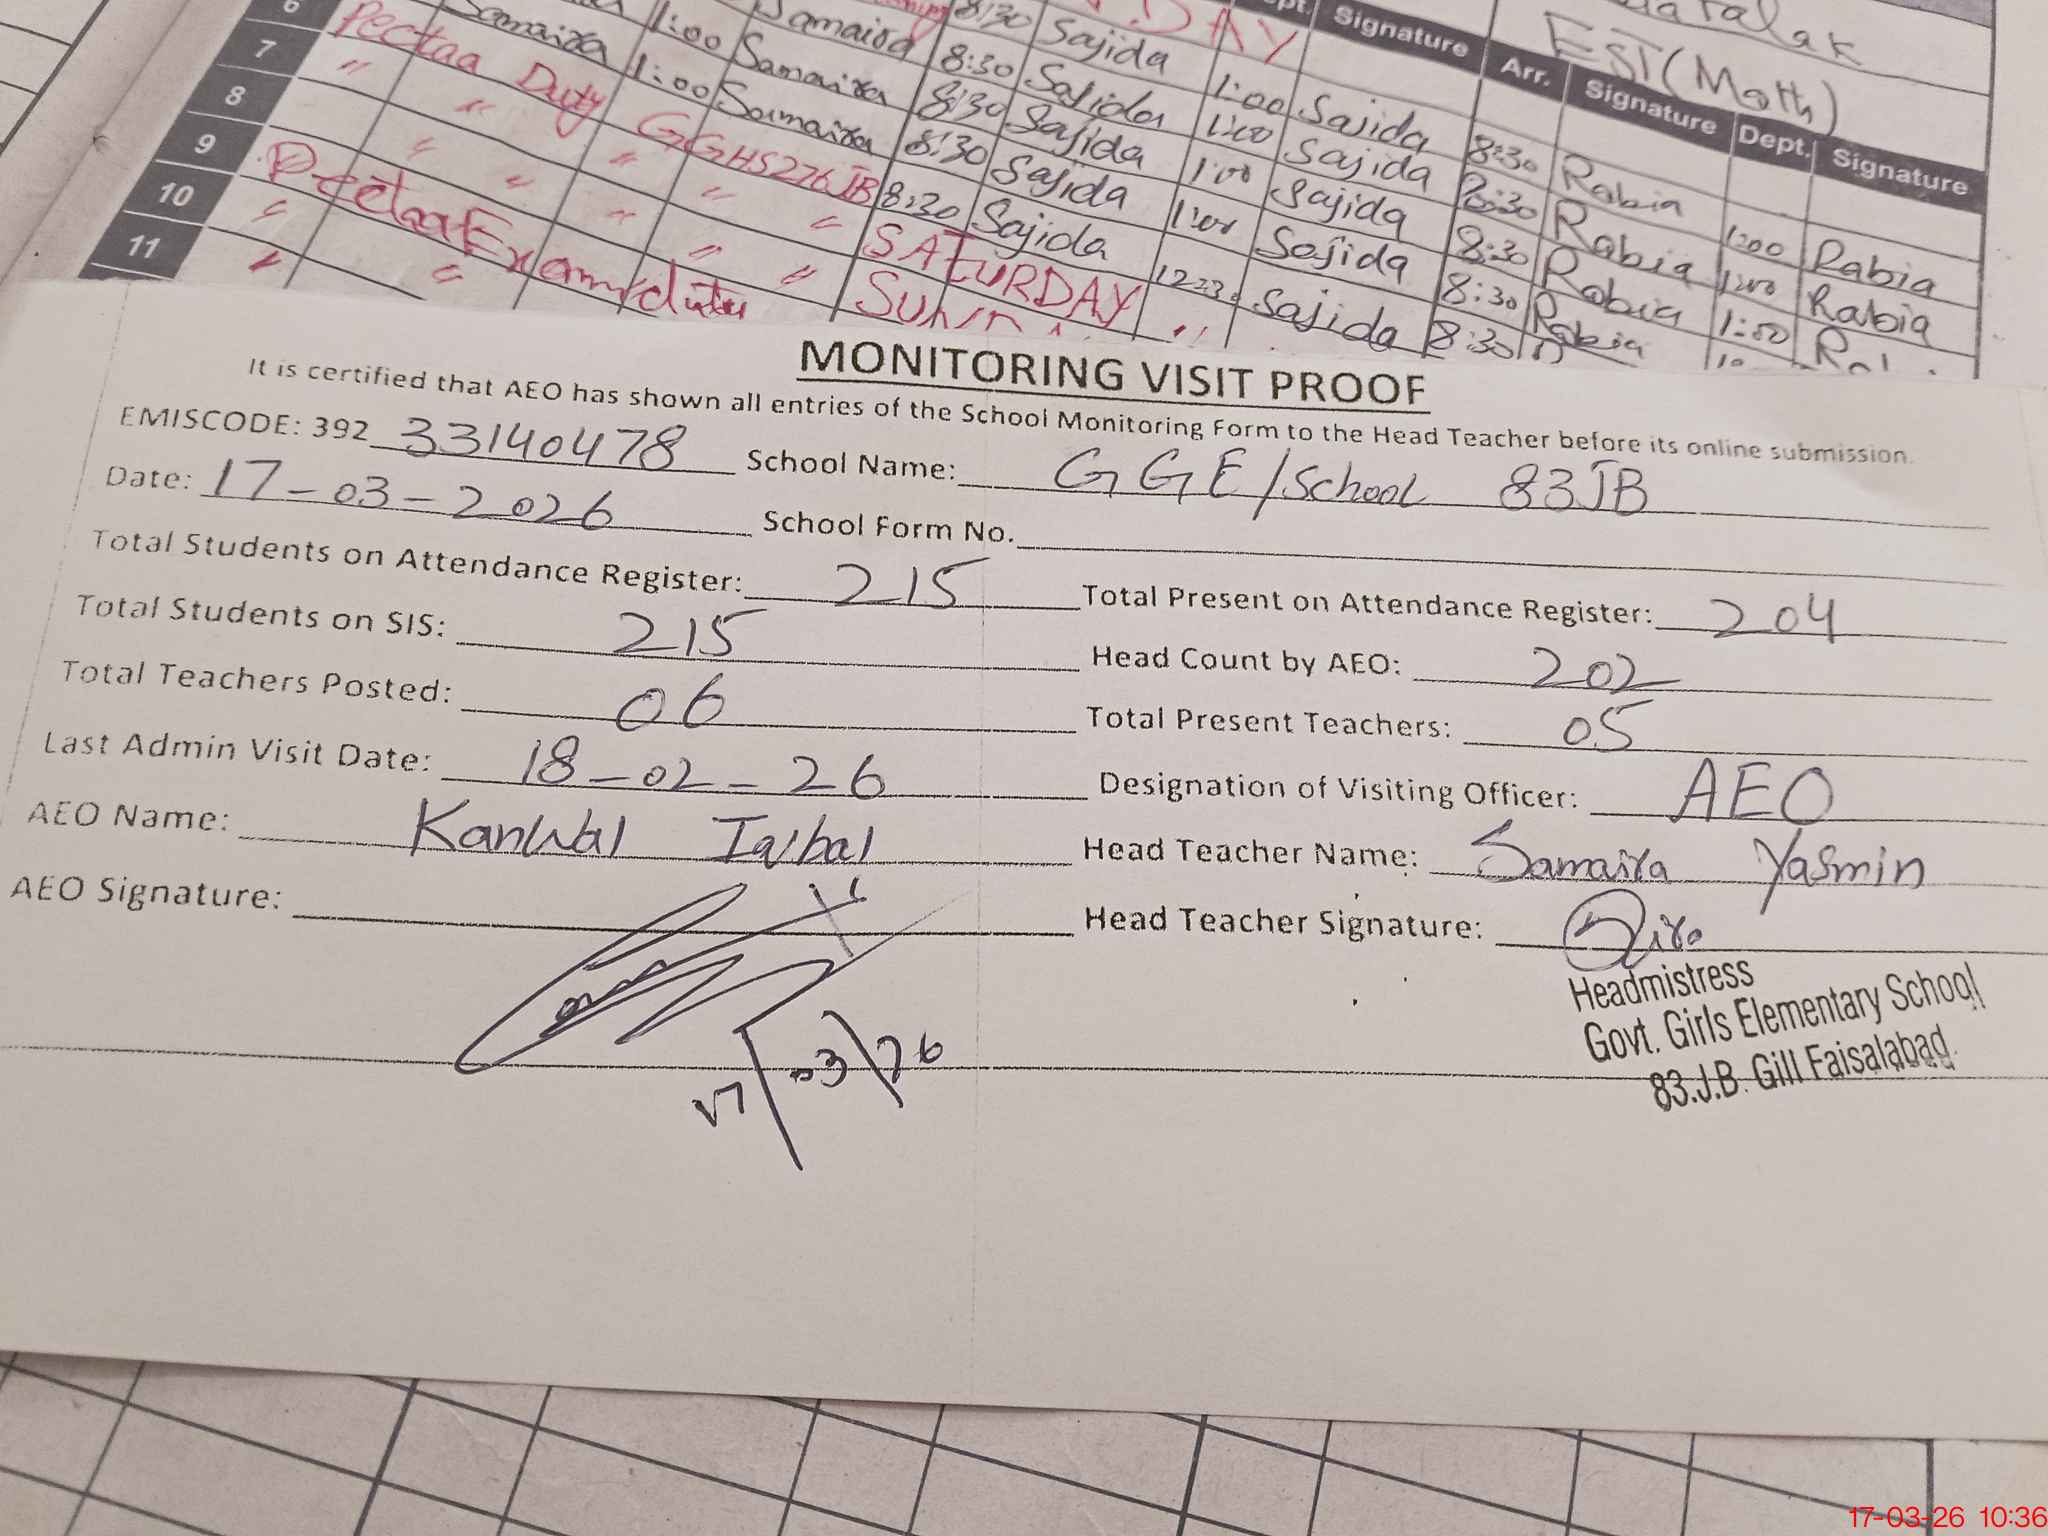 6 8:30 Sajida DAY
Samaira 1:00 Samaira 8:30 Sajida 1:00 Sajida 8:30 Rabia
7 Pectaa Duty GGHS276JB
Samaira 1:00 Samaira 8:30 Sajida 1:00 Sajida 8:30 Rabia 1:00 Rabia
8 " " " " " 8:30 Sajida 1:00 Sajida 8:30 Rabia 1:00 Rabia
9 " " " " " 8:30 Sajida 1:00 Sajida 8:30 Rabia 1:00
10 Pectaa Exam duty SATURDAY 12:30 Sajida 8:30
11 " " " "
Signature Arr. Signature Dept. Signature
EST (Math)
MONITORING VISIT PROOF
It is certified that AEO has shown all entries of the School Monitoring Form to the Head Teacher before its online submission.
EMISCODE: 392 33140478 School Name: GGE/School 83JB
Date: 17-03-2026 School Form No.
Total Students on Attendance Register: 215 Total Present on Attendance Register: 204
Total Students on SIS: 215 Head Count by AEO: 202
Total Teachers Posted: 06 Total Present Teachers: 05
Last Admin Visit Date: 18-02-26 Designation of Visiting Officer: AEO
AEO Name: Kanwal Iqbal Head Teacher Name: Samaira Yasmin
AEO Signature: Head Teacher Signature:
17/03/26
Headmistress
Govt. Girls Elementary School
83.J.B. Gill Faisalabad.
17-03-26 10:36